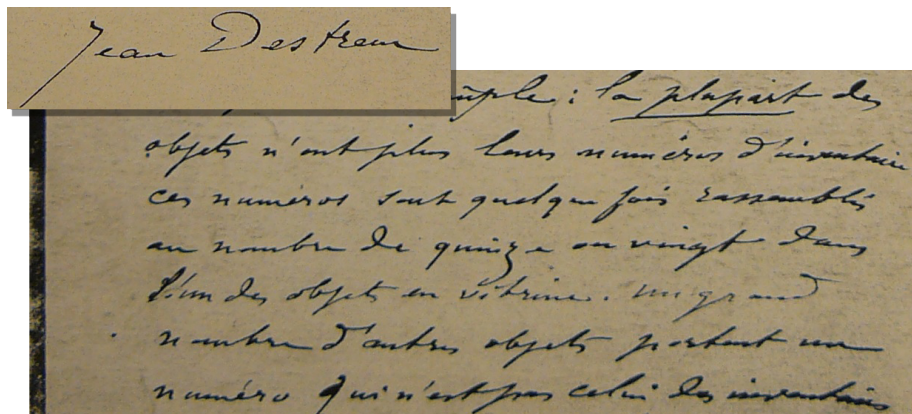 Jean Destrem
: la plupart des
objets n'ont plus leurs numéros d'inventaire
ces numéros sont quelque fois rassemblés
au nombre de quinze ou vingt dans
l'un des objets en vitrine. un grand
nombre d'autres objets portent un
numéro qui n'est pas celui des inventaires